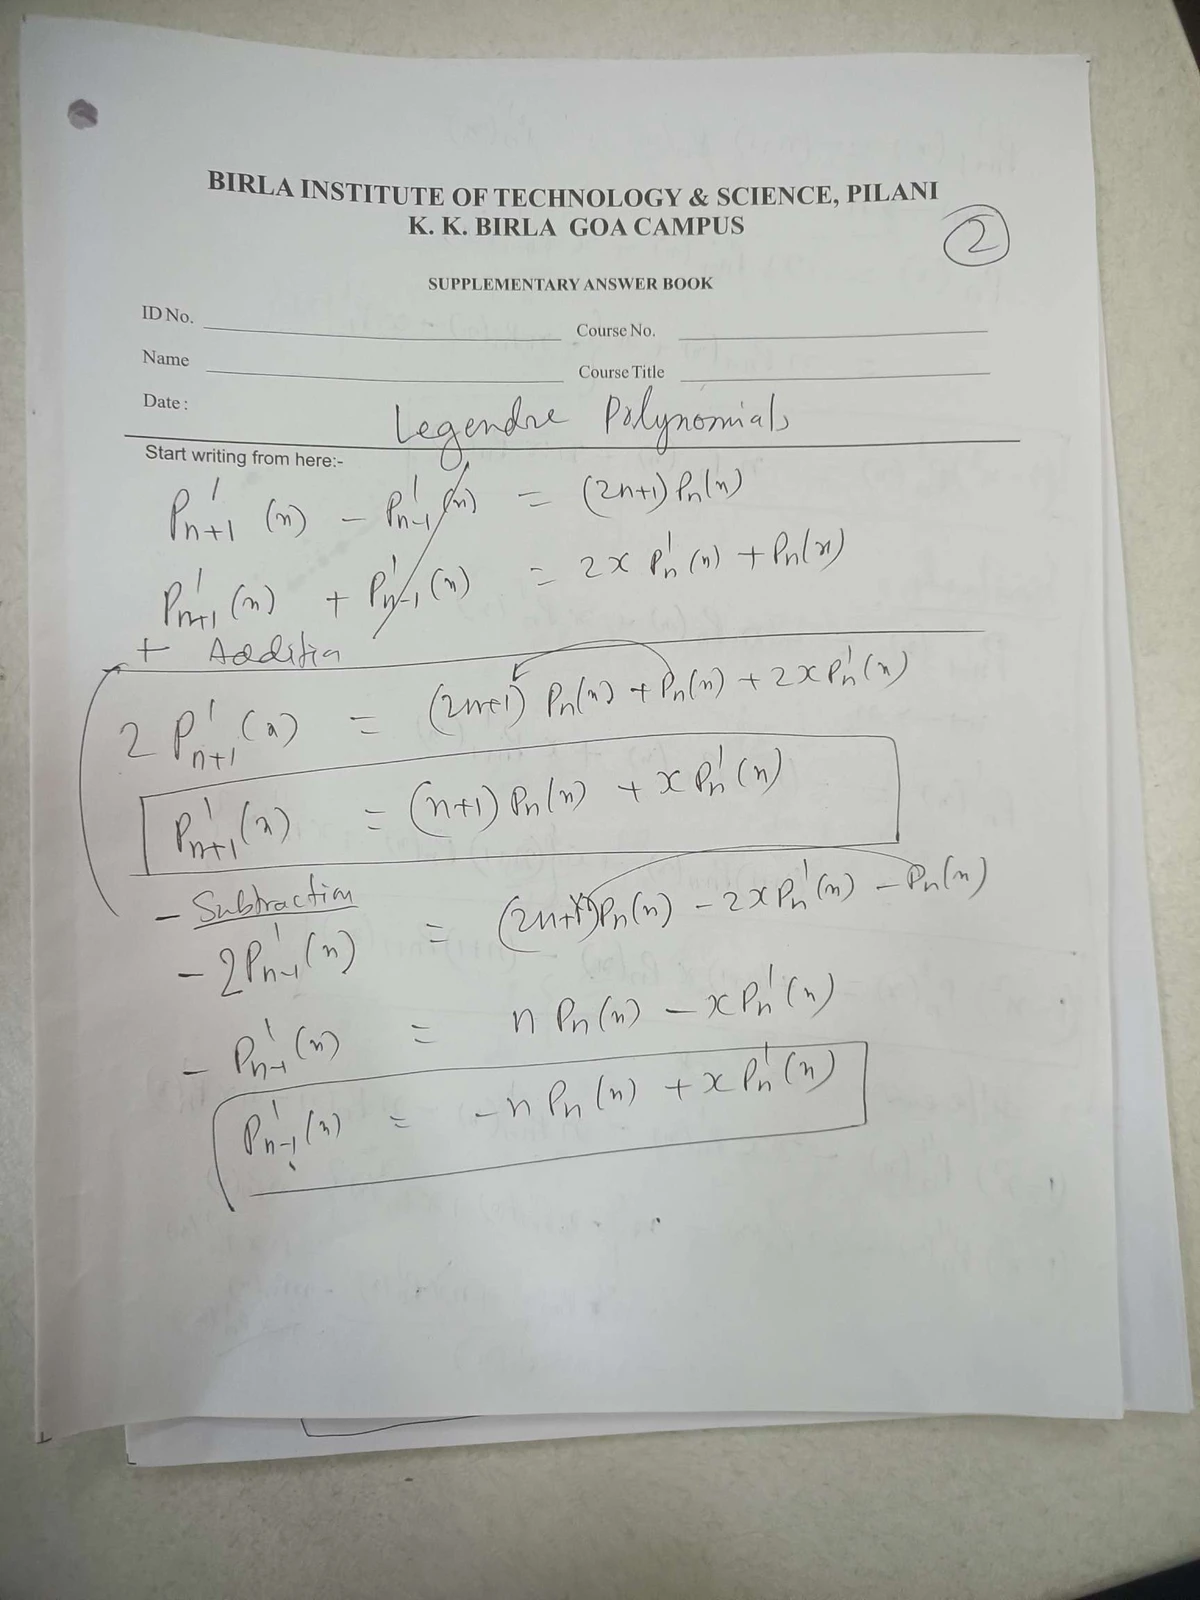 BIRLA INSTITUTE OF TECHNOLOGY & SCIENCE, PILANI
K. K. BIRLA GOA CAMPUS
2
SUPPLEMENTARY ANSWER BOOK
ID No.
Course No.
Name
Course Title
Date :
Legendre Polynomials
Start writing from here:-
P'n+1 (x) - P'n-1 (x) = (2n+1) Pn(x)
P'n+1 (x) + P'n-1 (x) = 2x P'n (x) + Pn(x)
+ Addition
2 P'n+1 (x) = (2n+1) Pn(x) + Pn(x) + 2x P'n(x)
P'n+1 (x) = (n+1) Pn(x) + x P'n (x)
- Subtraction
- 2P'n-1 (x) = (2n+1) Pn(x) - 2x P'n (x) - Pn(x)
- P'n-1 (x) = n Pn (x) - x P'n (x)
P'n-1 (x) = -n Pn (x) + x P'n (x)